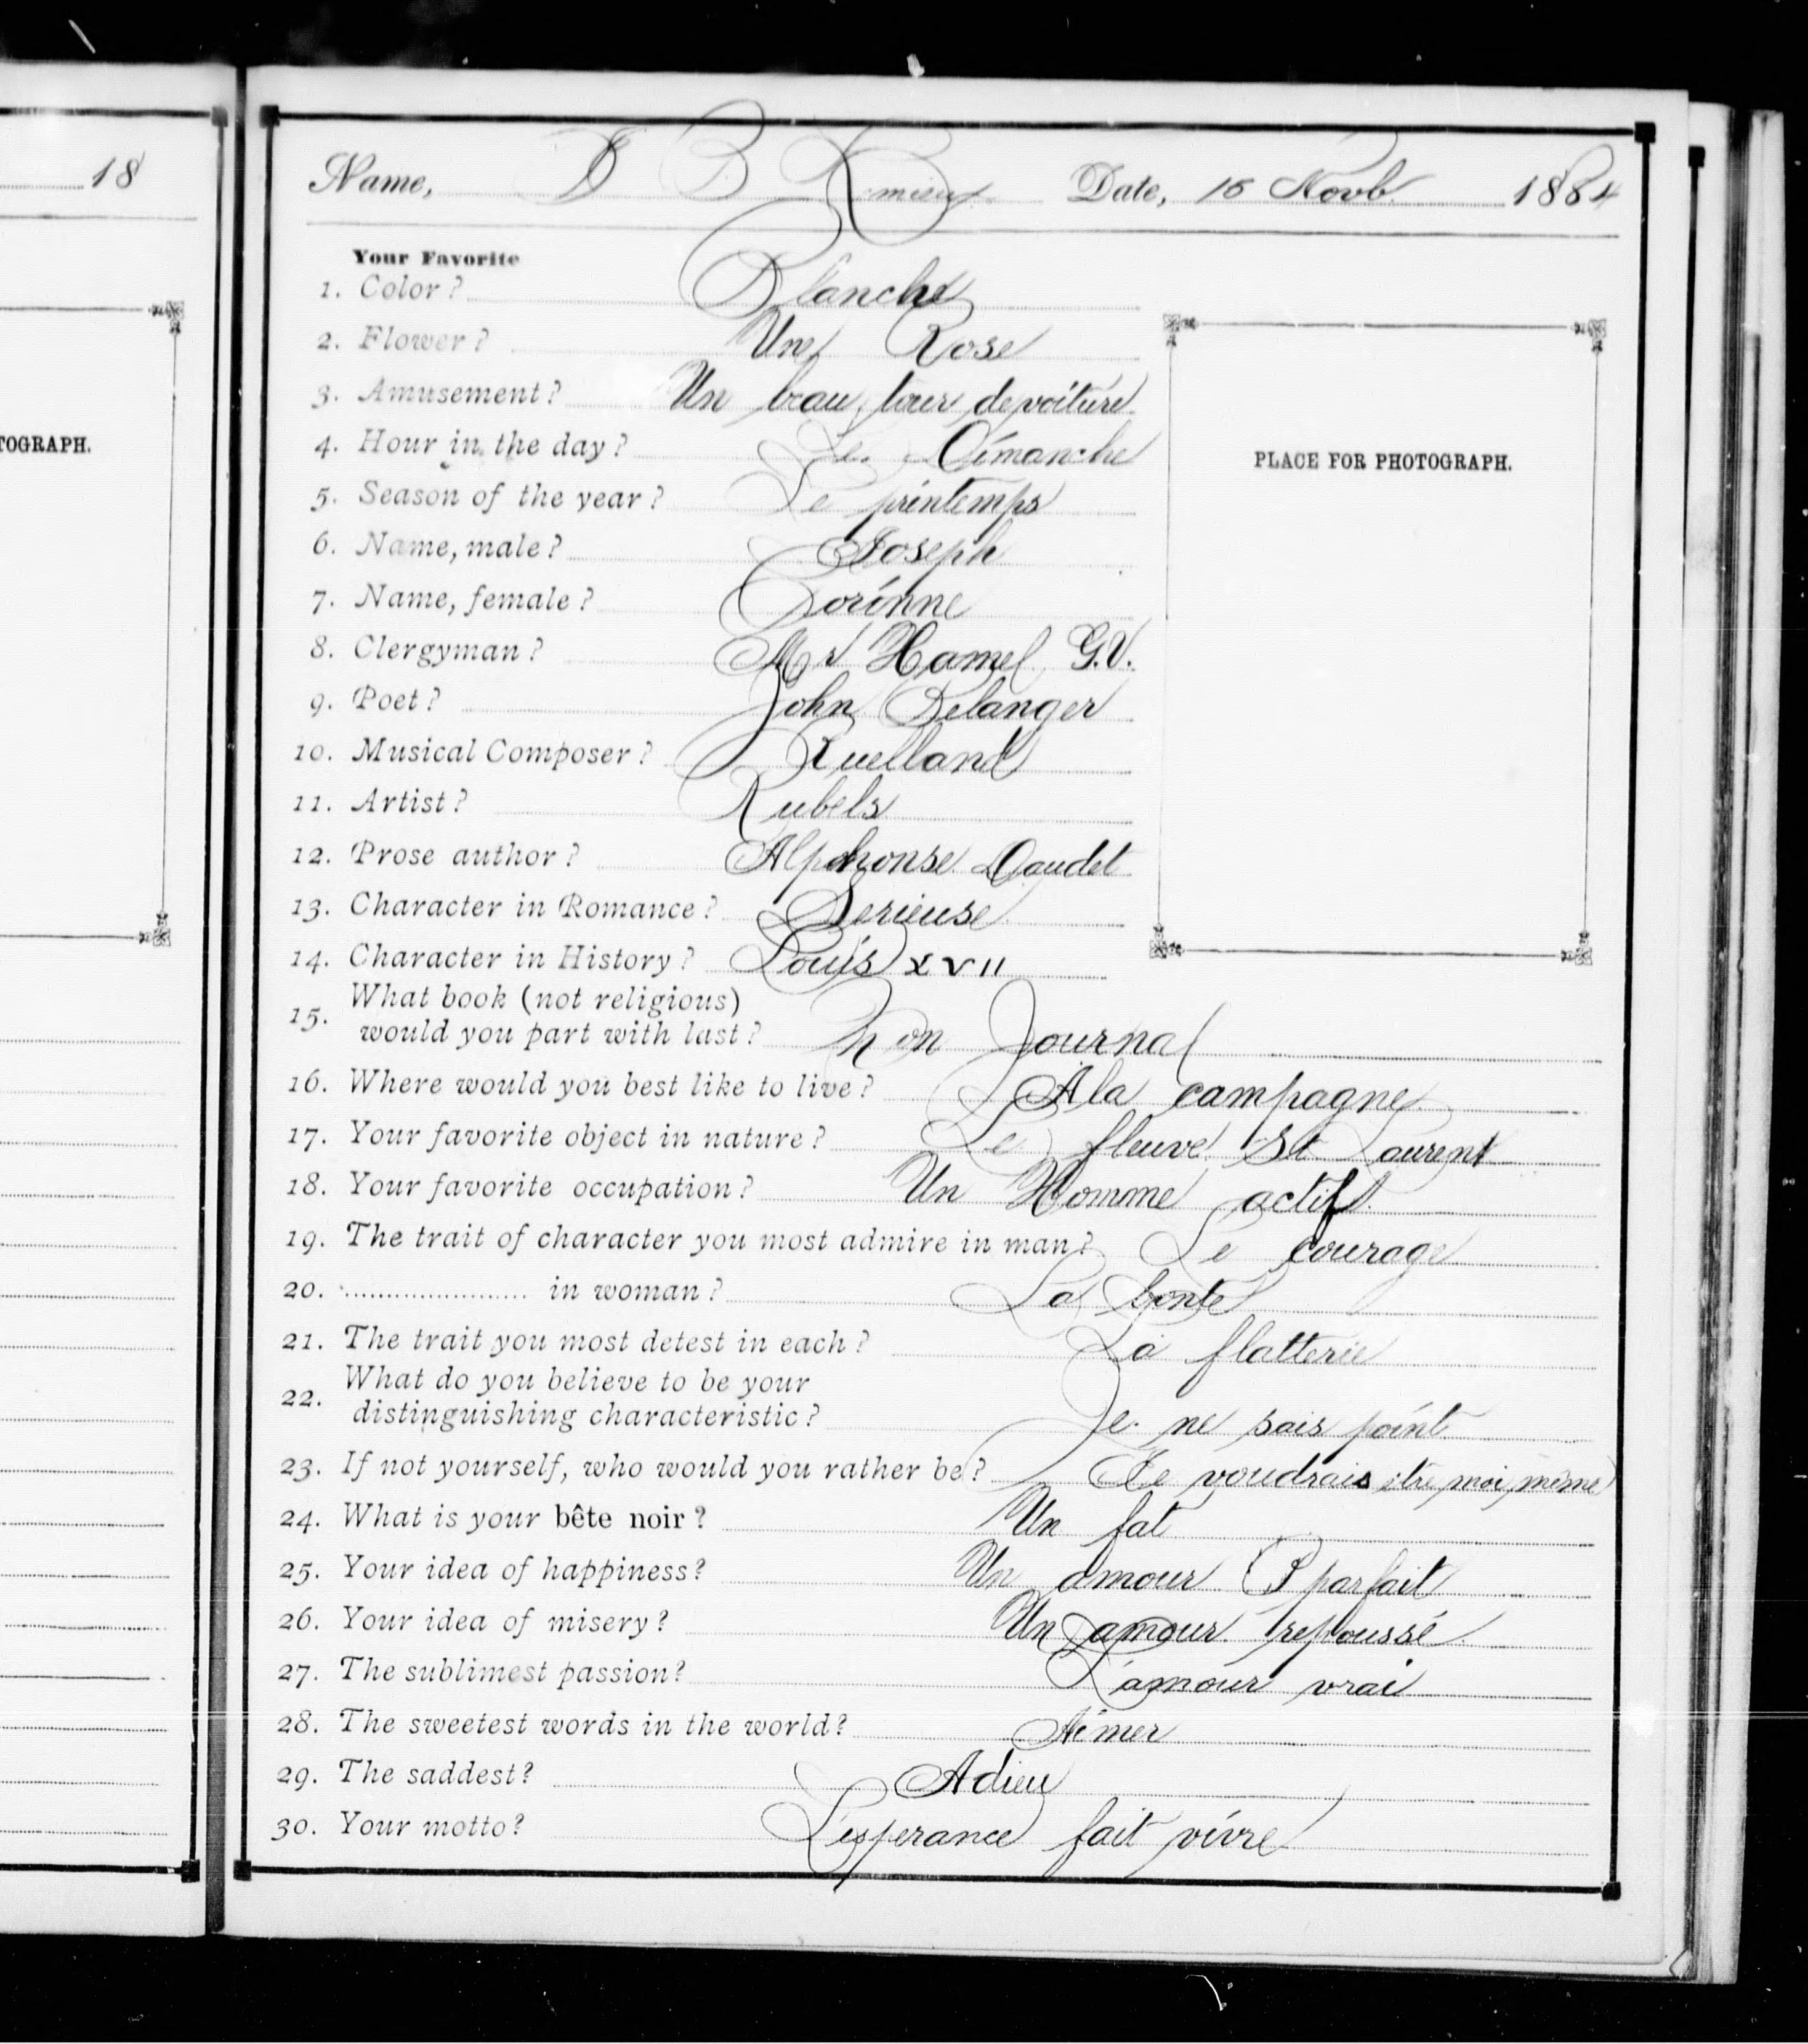 18
TOGRAPH.
Name, D B Date, 16 Novb. 1884
Your Favorite
1. Color? Blanche
2. Flower? Une Rose
3. Amusement? Un beau tour de voiture
4. Hour in the day? Le Dimanche
5. Season of the year? Le printemps
6. Name, male? Joseph
7. Name, female? Corinne
8. Clergyman? Mr Hamel G.V.
9. Poet? John Belanger
10. Musical Composer? Ruelland
11. Artist? Rubels
12. Prose author? Alphonse Daudet
13. Character in Romance? Serieuse
14. Character in History? Louis XVII
PLACE FOR PHOTOGRAPH.
What book (not religious)
15. would you part with last? Mon Journal
16. Where would you best like to live? A la campagne
17. Your favorite object in nature? Le fleuve St Laurent
18. Your favorite occupation? Un Homme actif
19. The trait of character you most admire in man? Le courage
20. in woman? La bonte
21. The trait you most detest in each? La flatterie
What do you believe to be your
22. distinguishing characteristic? Je ne sais point
23. If not yourself, who would you rather be? Je voudrais être moi même
24. What is your bête noir? Un fat
25. Your idea of happiness? Un amour parfait
26. Your idea of misery? Un amour repoussé
27. The sublimest passion? L'amour vrai
28. The sweetest words in the world? Aimer
29. The saddest? Adieu
30. Your motto? L'esperance fait vivre